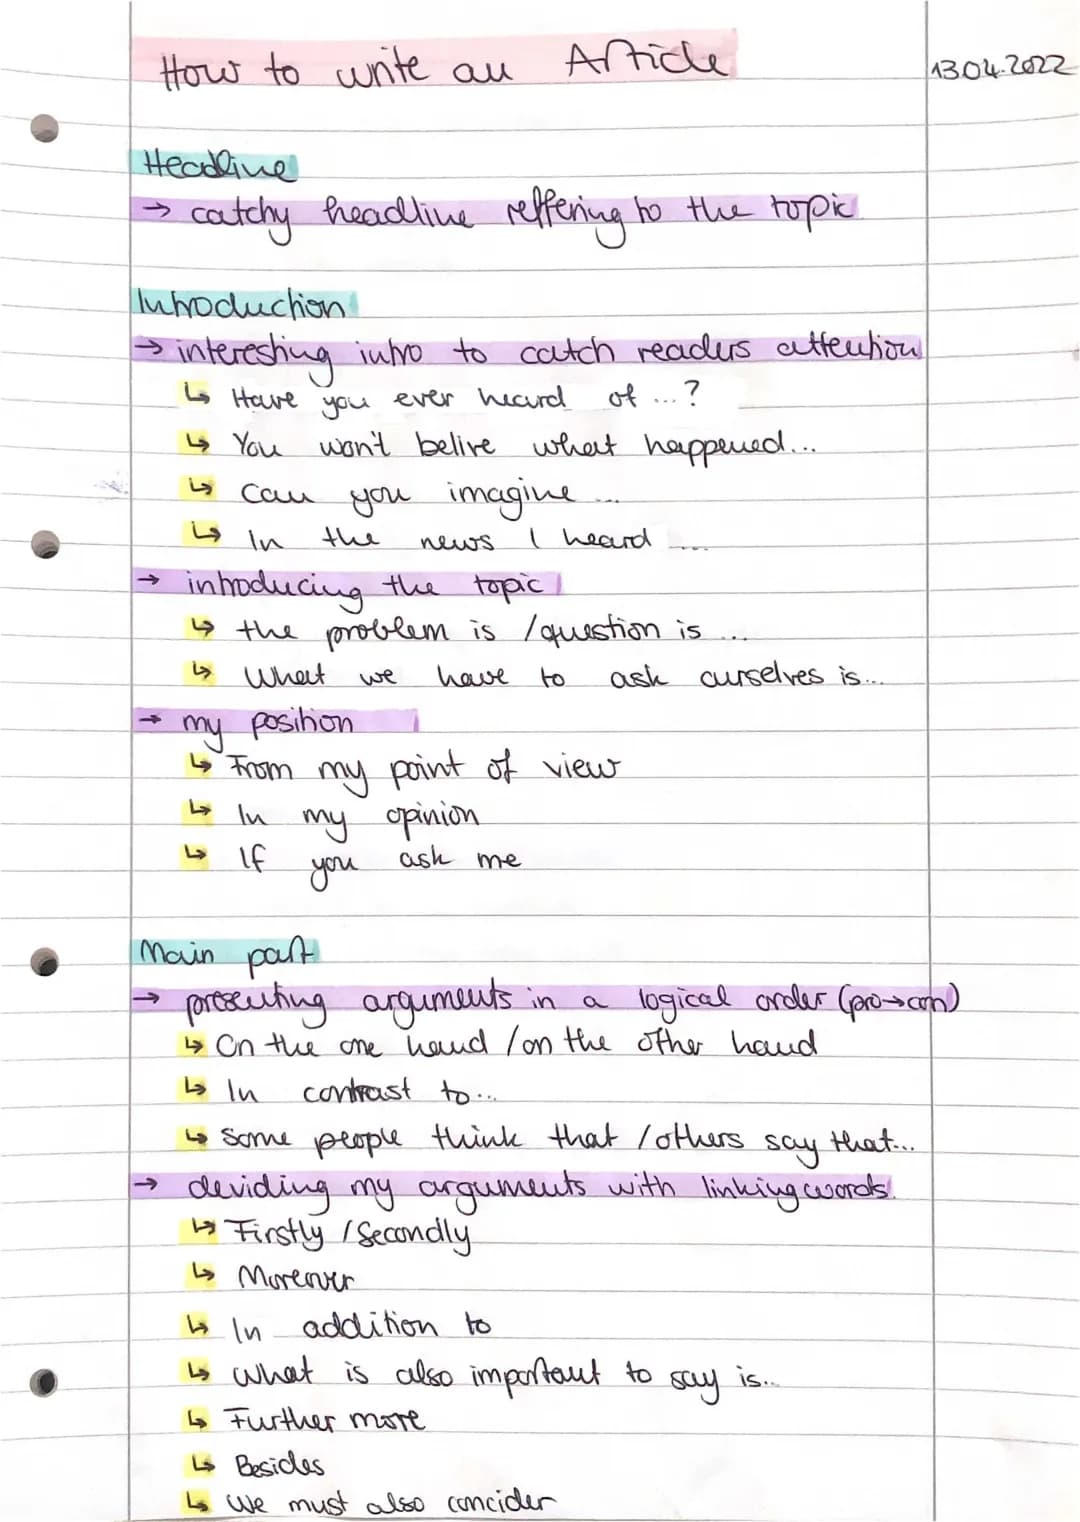 How to write an Article
13.04.2022
Headline
→ catchy headline reffering to the topic
Introduction
→ interesting intro to catch readers attention
↳ Have you ever heard of ...?
↳ You won't belive what happened...
↳ Can you imagine ...
↳ In the news I heard ....
→ introducing the topic
↳ the problem is / question is ...
↳ What we have to ask ourselves is...
→ my position
↳ From my point of view
↳ In my opinion
↳ If you ask me
Main part
→ presenting arguments in a logical order (pro→con)
↳ On the one hand / on the other hand
↳ In contrast to...
↳ Some people think that / others say that...
→ deviding my arguments with linking words.
↳ Firstly / Secondly
↳ Moreover
↳ In addition to
↳ What is also important to say is...
↳ Further more
↳ Besides
↳ We must also concider